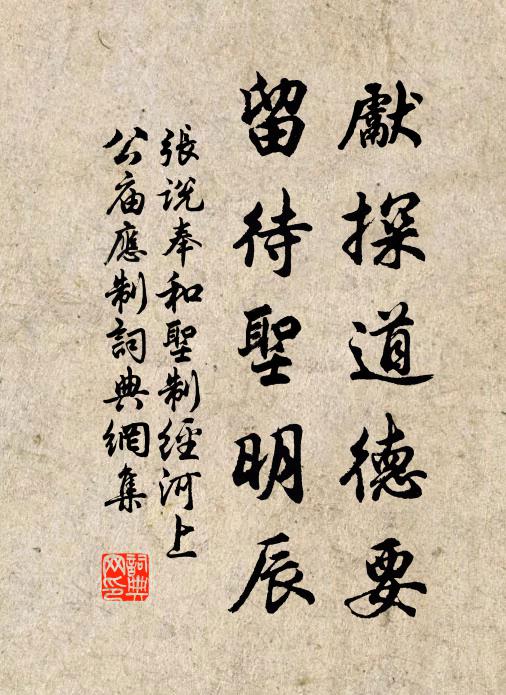 獻探道德要
留待聖明辰
張説奉和聖制經河上
公庙應制詞典網集
詞典
网印